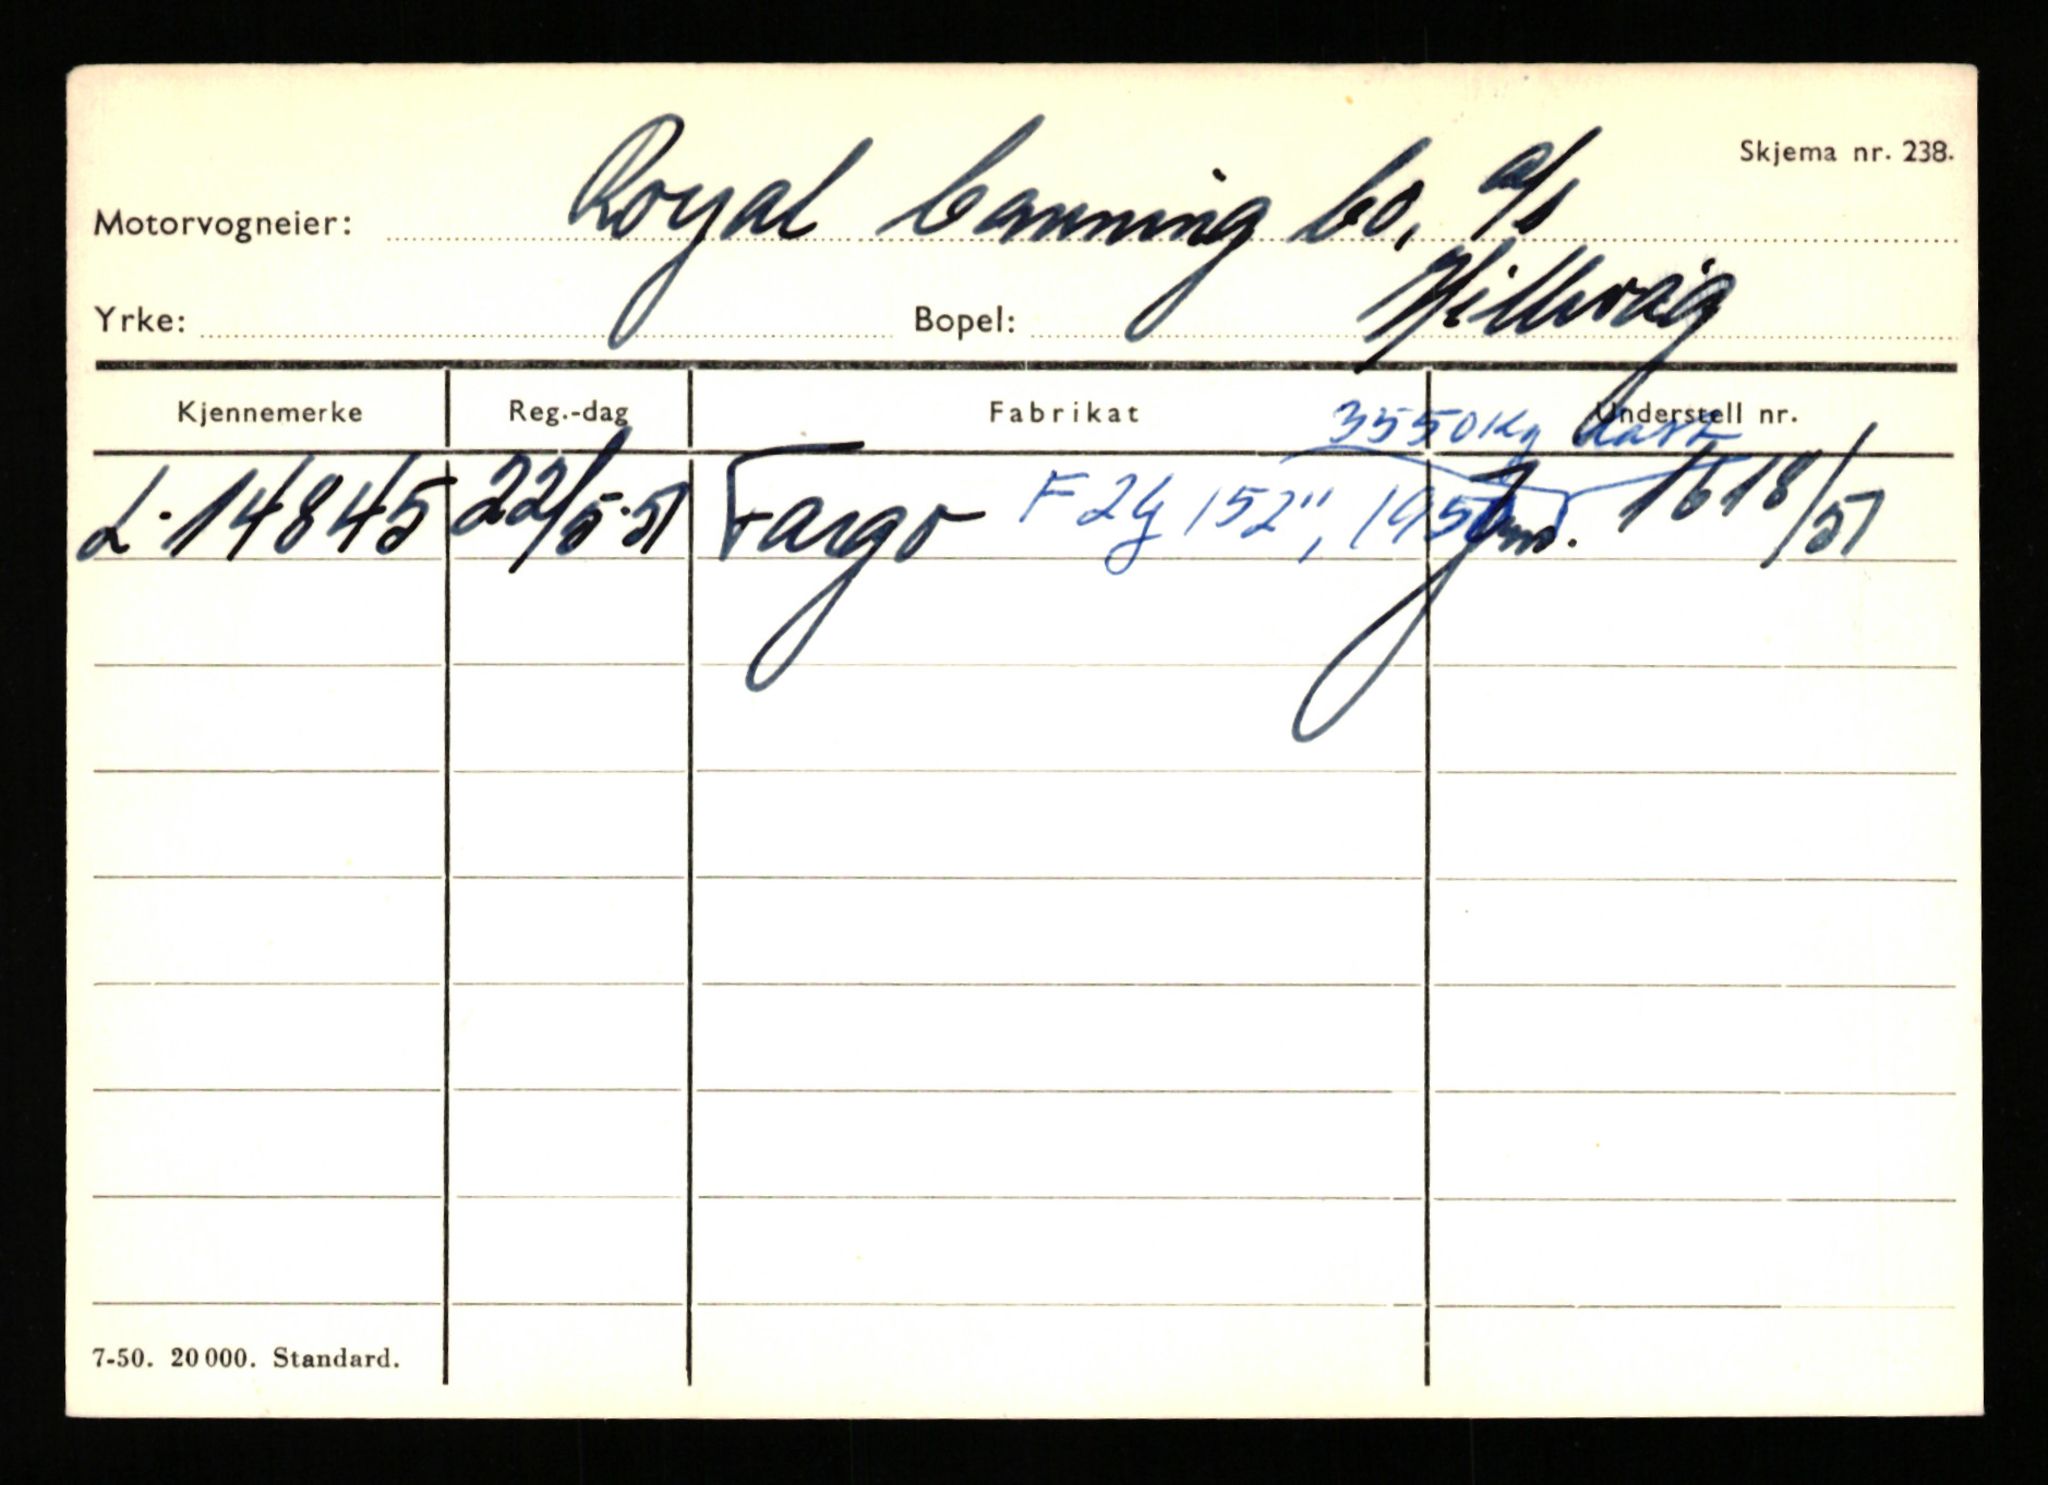 Skjema nr. 238.
Motorvogneier: Royal Canning Co, a/s
Yrke: Bopel: Hillevåg
Kjennemerke Reg.-dag Fabrikat Understell nr.
3550 Kg last
L-14845 22/5-51 Fargo F2G 152", 1950 Jno. 1618/51
7-50. 20 000. Standard.